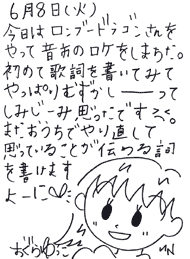 6月8日(火)
今日はロンブードラゴンさんを
やって昔おのロケをしまちだ。
初めて歌詞を書いてみて
やっぱりむずかしーーって
しみじーみ思ったですろぐ。
またおうちでやり直して
思っていることが伝わる詞
を書けます
よーに♡
おぐらゆうこ